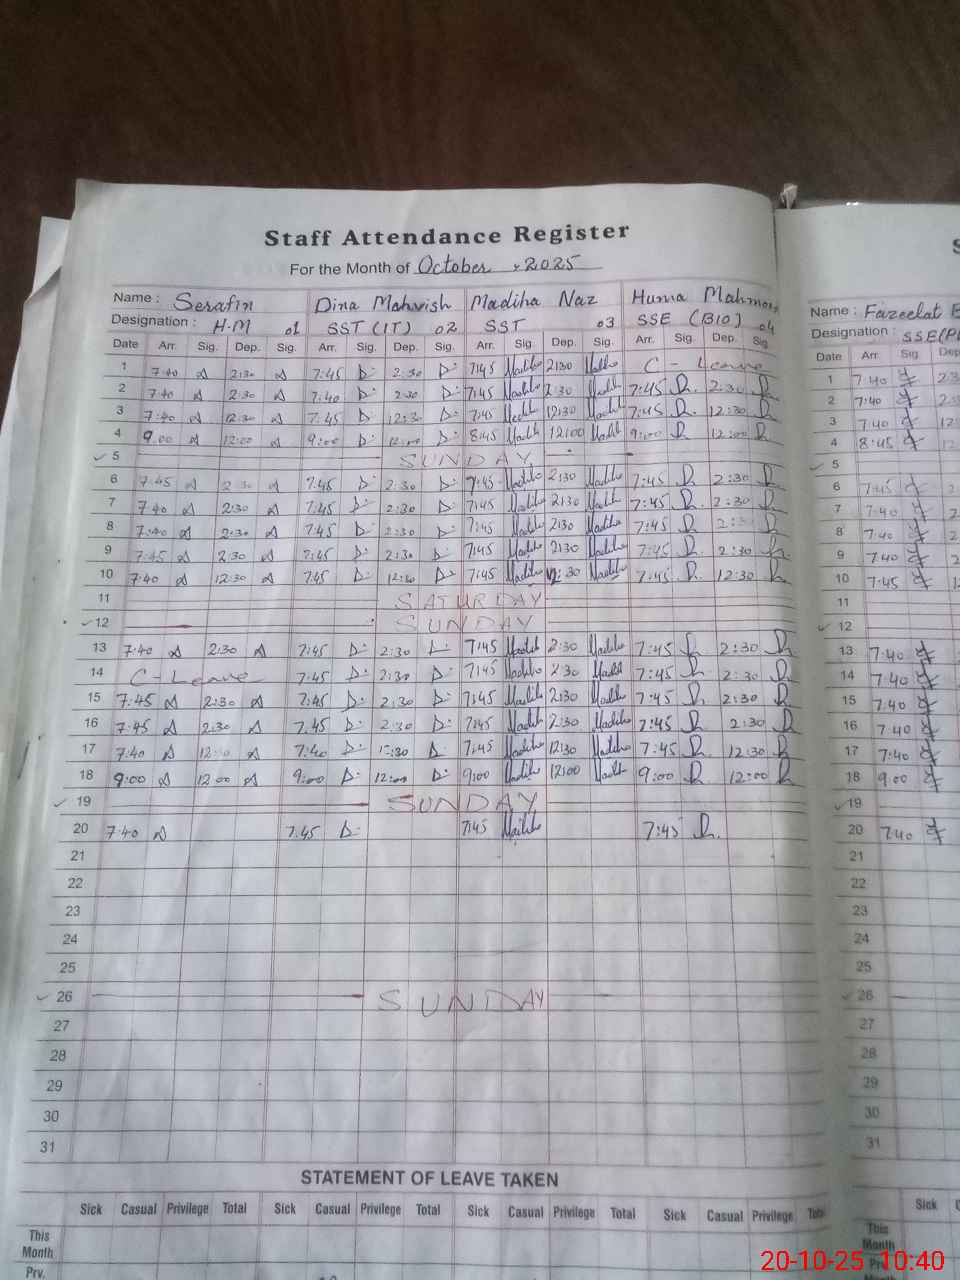 Staff Attendance Register
S
For the Month of October 2025
Name : Serafin Dina Mahvish Madiha Naz Huma Mahmood
Name : Fazeelat B
Designation : H.M 01 SST (IT) 02 SST 03 SSE (BIO) 04
Designation : SSE(P
Date Arr. Sig. Dep. Sig. Arr. Sig. Dep. Sig. Arr. Sig. Dep. Sig. Arr. Sig. Dep. Sig.
Date Arr. Sig. Dep
1 7:40 2:30 7:45 D 2:30 D 7:45 Madiha 2:30 Madiha C - Leave
1 7:40 2:3
2 7:40 2:30 7:40 D 2:30 D 7:45 Madiha 2:30 Madiha 7:45 2:30
2 7:40
3 7:40 12:30 7:45 D 12:30 D 7:45 Madiha 12:30 Madiha 7:45 12:30
3 7:40 12
4 9.00 12:00 9:00 D 12:00 D 8:45 Madiha 12:00 Madiha 9:00 12:00
4 8:45
5 SUNDAY
5
6 7:45 2:30 7:45 D 2:30 D 7:45 Madiha 2:30 Madiha 7:45 2:30
6 7:45
7 7:40 2:30 7:45 D 2:30 D 7:45 Madiha 2:30 Madiha 7:45 2:30
7 7:40
8 7:40 2:30 7:45 D 2:30 D 7:45 Madiha 2:30 Madiha 7:45 2:30
8 7:40
9 7:45 2:30 7:45 D 2:30 D 7:45 Madiha 2:30 Madiha 7:45 2:30
9 7:40
10 7:40 12:30 7:45 D 12:30 D 7:45 Madiha 12:30 Madiha 7:45 12:30
10 7:45
11 SATURDAY
11
12 SUNDAY
12
13 7:40 2:30 7:45 D 2:30 D 7:45 Madiha 2:30 Madiha 7:45 2:30
13 7:40
14 C-Leave 7:45 D 2:30 D 7:45 Madiha 2:30 Madiha 7:45 2:30
14 7:40
15 7:45 2:30 7:45 D 2:30 D 7:45 Madiha 2:30 Madiha 7:45 2:30
15 7:40
16 7:45 2:30 7.45 D 2:30 D 7:45 Madiha 2:30 Madiha 7:45 2:30
16 7:40
17 7:40 12:30 7:40 D 12:30 D 7:45 Madiha 12:30 Madiha 7:45 12:30
17 7:40
18 9:00 12:00 9:00 D 12:00 D 9:00 Madiha 12:00 Madiha 9:00 12:00
18 9.00
19 SUNDAY
19
20 7:40 7.45 D 7:45 Madiha 7:45
20 7:40
21
21
22
22
23
23
24
24
25
25
26 SUNDAY
26
27
27
28
28
29
29
30
30
31
31
STATEMENT OF LEAVE TAKEN
Sick Casual Privilege Total Sick Casual Privilege Total Sick Casual Privilege Total Sick Casual Privilege Total
Sick C
This Month
This Month
Prv.
Pre
20-10-25 10:40